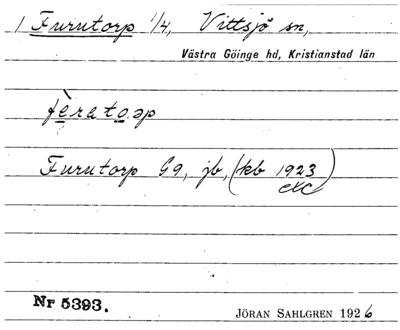 1 Furutorp 1/4, Vittsjö sn,
Västra Göinge hd, Kristianstad län
fèratoₔp
Furutorp G9, jb, (kb 1923 exc)
Nr 5393.
JÖRAN SAHLGREN 1926